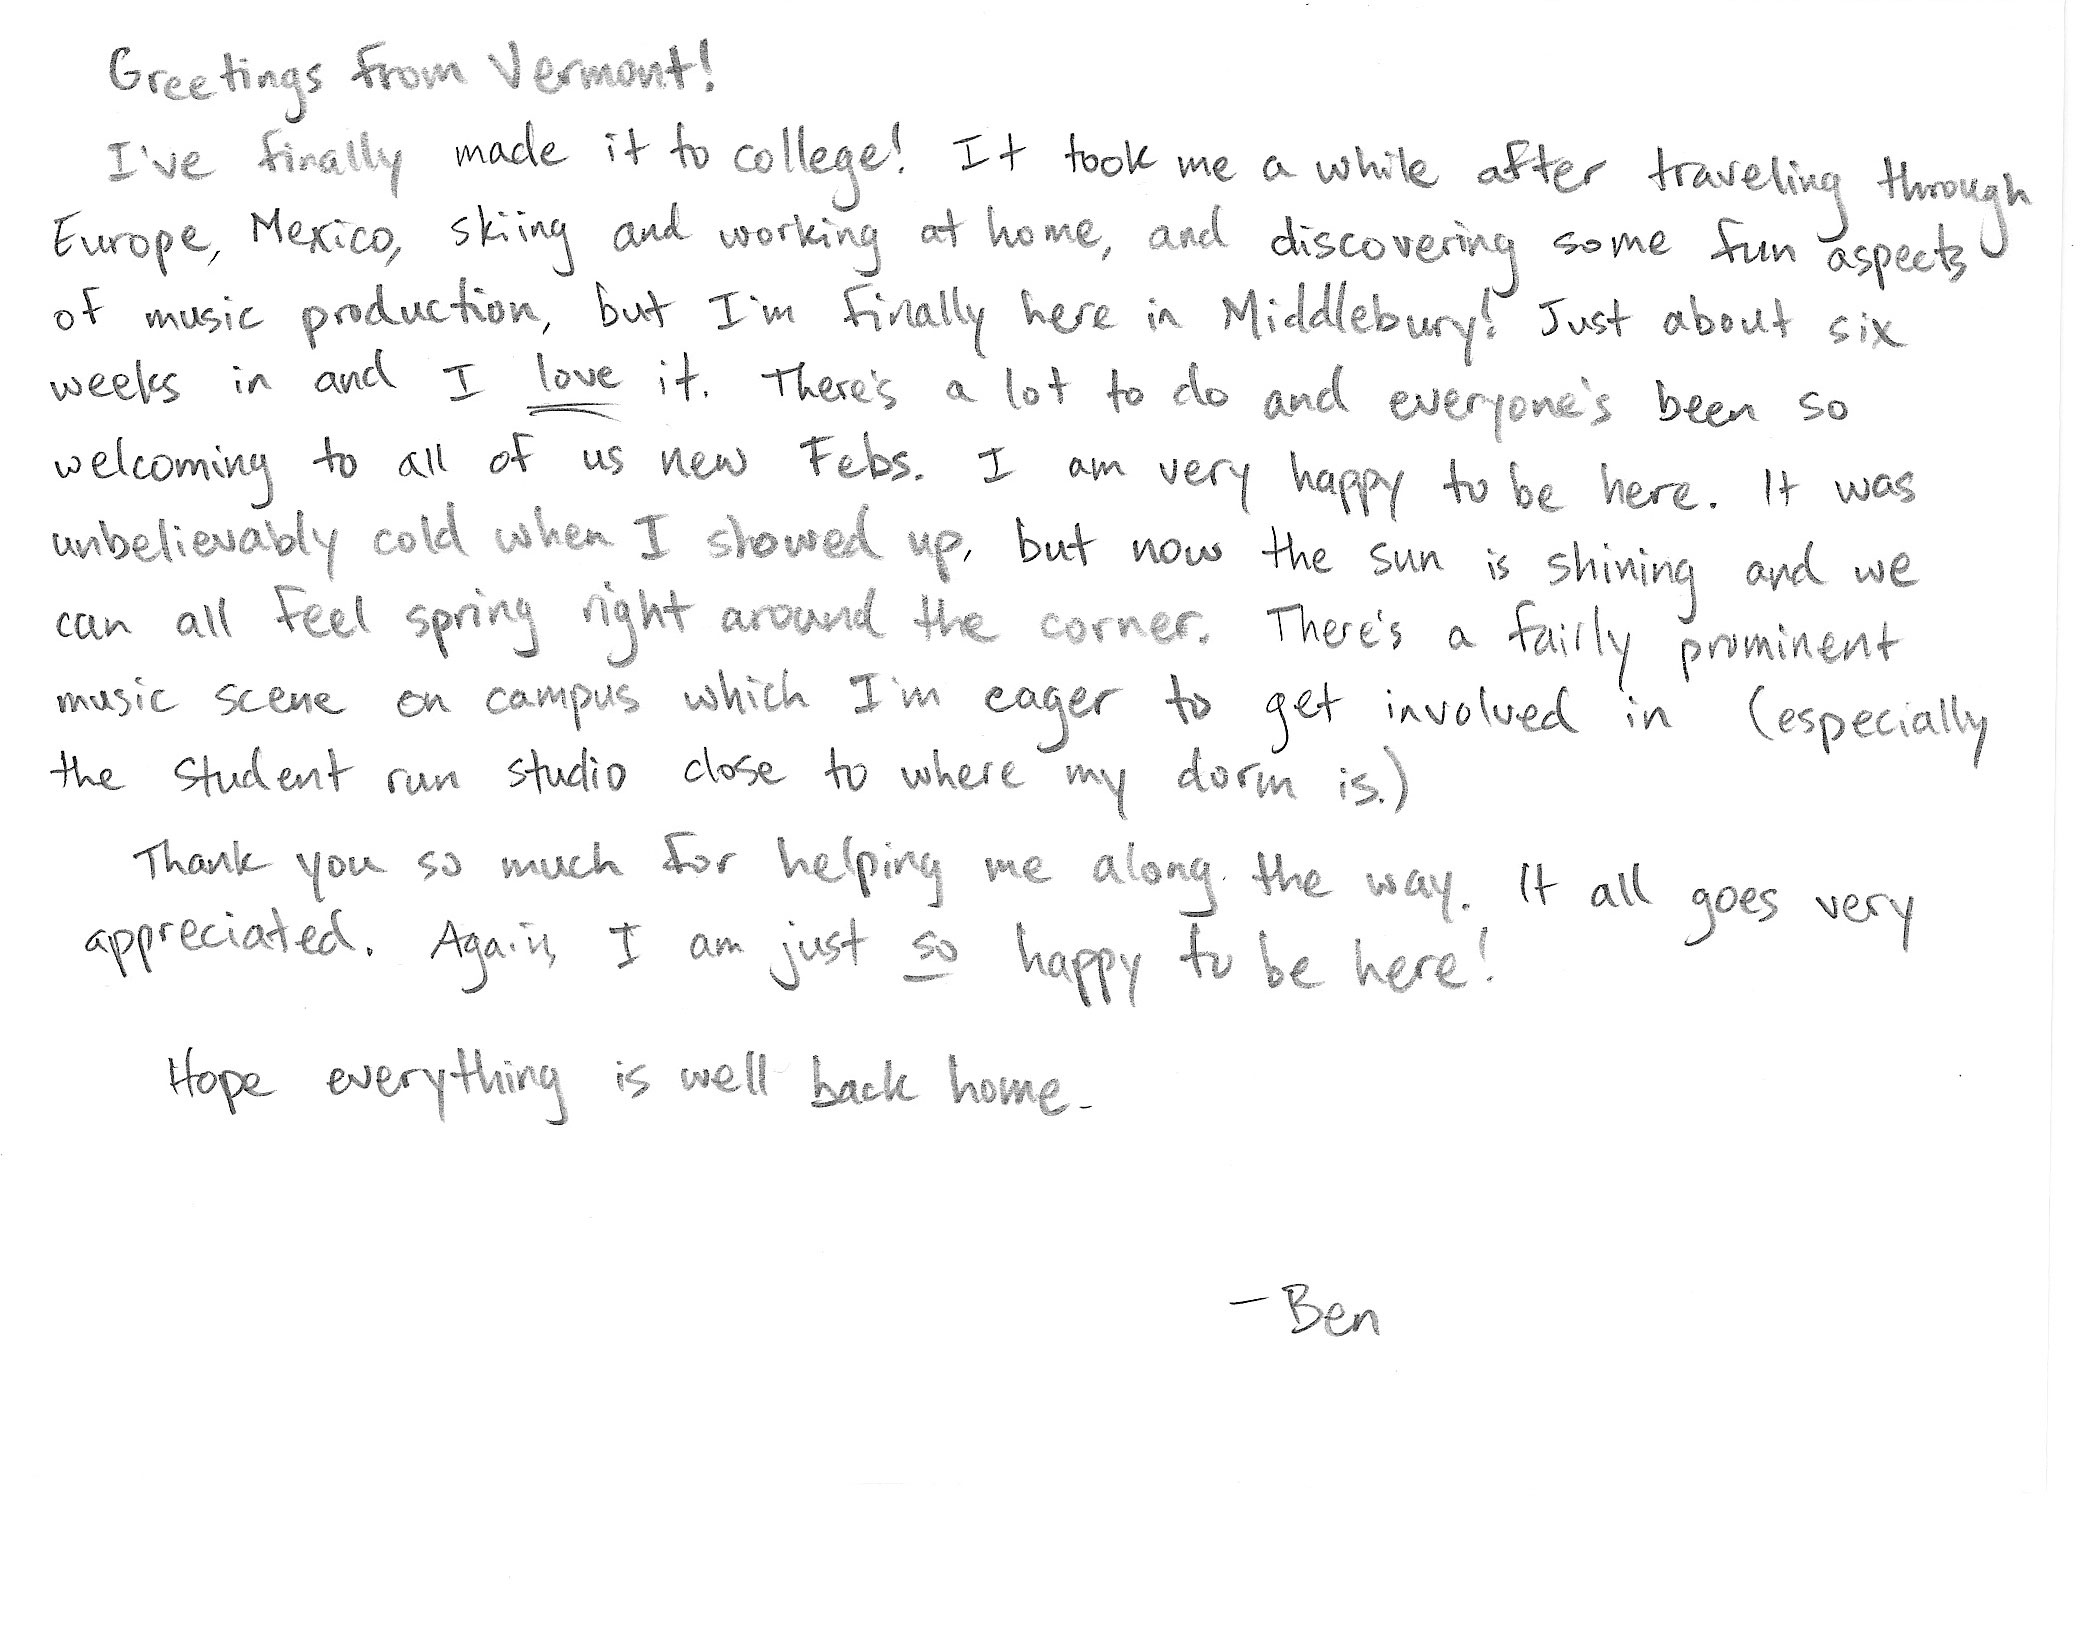 Greetings from Vermont!
I've finally made it to college! It took me a while after traveling through
Europe, Mexico, skiing and working at home, and discovering some fun aspects
of music production, but I'm finally here in Middlebury! Just about six
weeks in and I love it. There's a lot to do and everyone's been so
welcoming to all of us new Febs. I am very happy to be here. It was
unbelievably cold when I showed up, but now the sun is shining and we
can all feel spring right around the corner. There's a fairly prominent
music scene on campus which I'm eager to get involved in (especially
the student run studio close to where my dorm is.)
Thank you so much for helping me along the way. It all goes very
appreciated. Again, I am just so happy to be here!
Hope everything is well back home.
- Ben